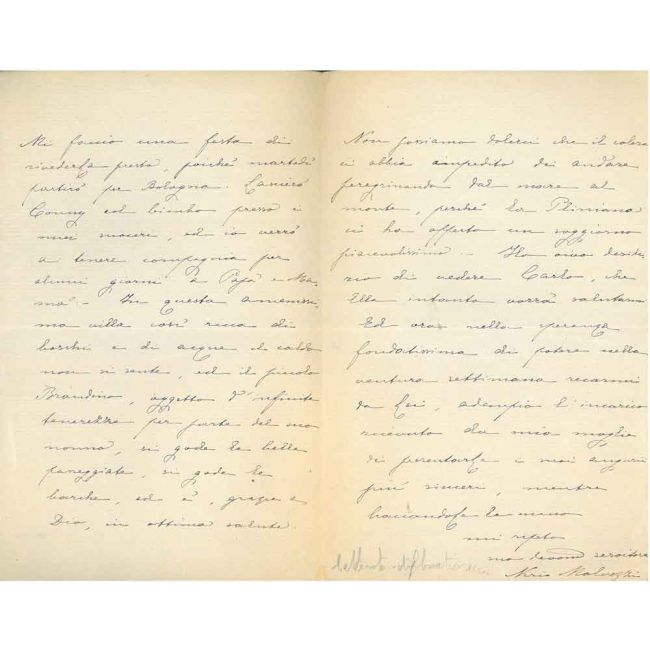 Mi faccio una festa di
rivederla presto, poiché martedì
partirò per Bologna. Lascerò
Conny ed bimbo presso i
miei suoceri, ed io verrò
a tenere compagnia per
alcuni giorni a Papà e Ma-
mà. - In questa amenissi-
ma villa così ricca di
boschi e di acque il caldo
non si sente, ed il piccolo
Brandino, oggetto d'infinite
tenerezze per parte del suo
nonno, si gode le belle
passeggiate, si gode le
barche, ed è, grazie a
Dio, in ottima salute.
Non possiamo dolerci che il colera
ci abbia impedito di andare
peregrinando dal mare al
monte, perché la Pliniana
ci ha offerto un soggiorno
piacevolissimo. - Ho vivo deside-
rio di vedere Carlo, che
Ella intanto vorrà salutarmi.
Ed ora nella speranza
fondatissima di potere nella
ventura settimana recarmi
da Lei, adempio l'incarico
ricevuto da mia moglie
di presentarle i suoi auguri
più sinceri, mentre
baciandole le mano
mi ripeto
suo devoto servitore
Nerio Malvezzi